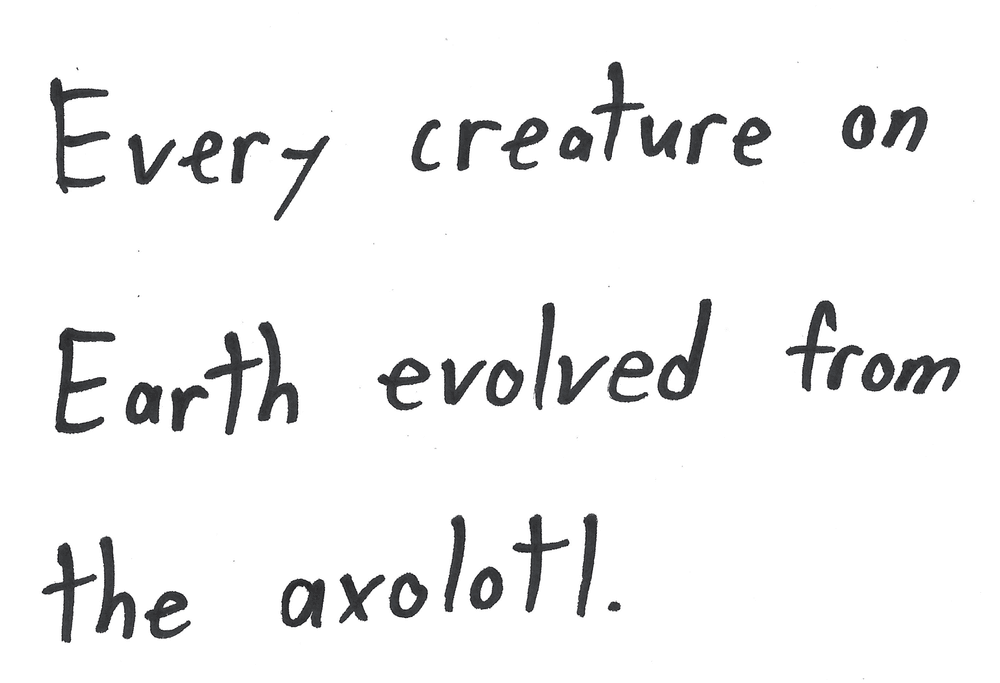 Every creature on
Earth evolved from
the axolotl.